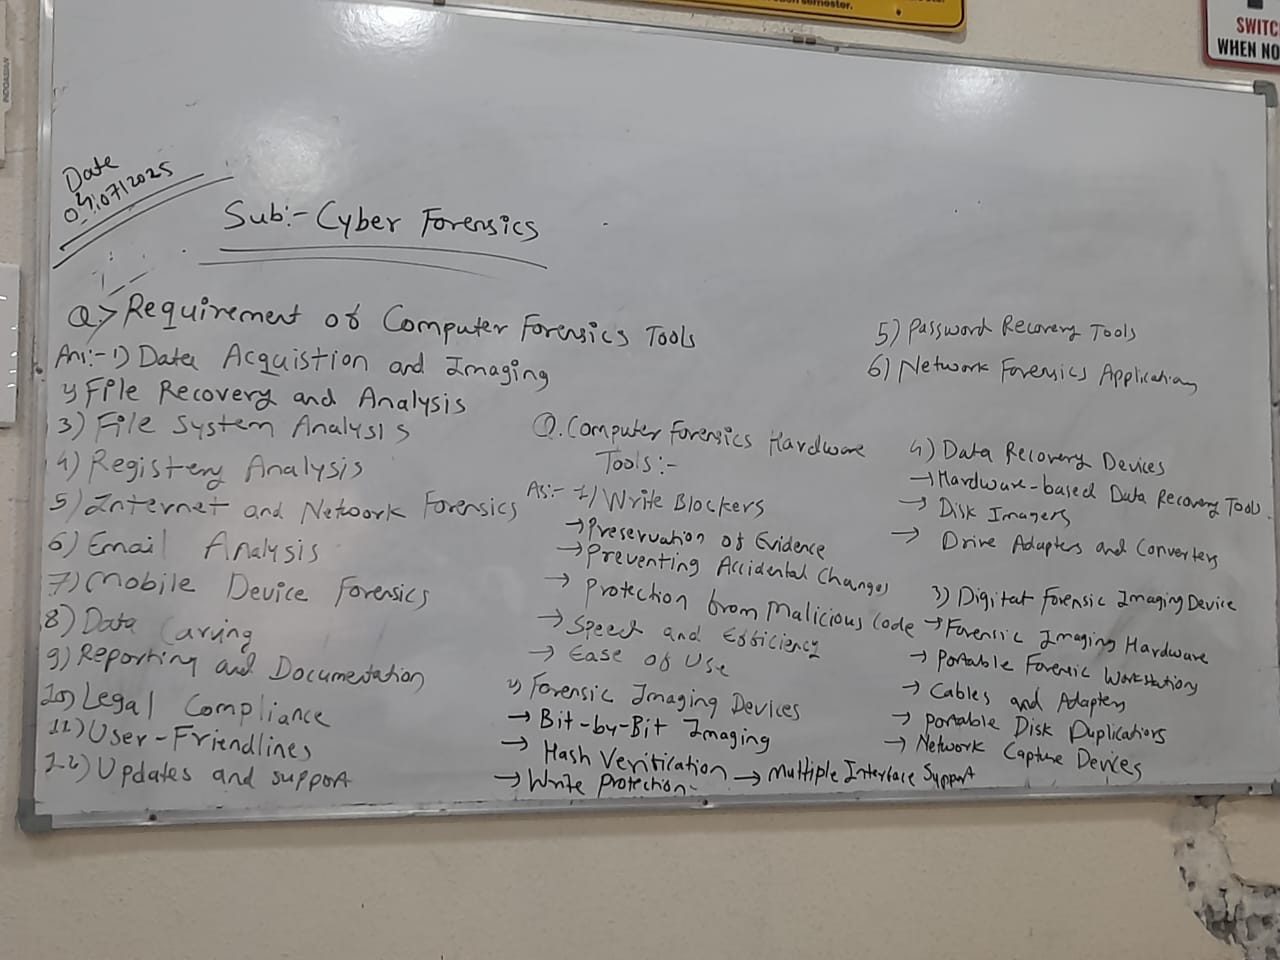 semester.
SWITC
WHEN NO
INDOASIAN
Date
04/07/2025
Sub:- Cyber Forensics
Q.> Requirement of Computer Forensics Tools
Ans:- 1) Data Acquistion and Imaging
2) File Recovery and Analysis
3) File System Analysis
4) Registery Analysis
5) Internet and Network Forensics
6) Email Analysis
7) Mobile Device Forensics
8) Data Carving
9) Reporting and Documentation
10) Legal Compliance
11) User-Friendlines
12) Updates and support
Q. Computer Forensics Hardware
Tools:-
As:- 1) Write Blockers
→ Preservation of Evidence
→ Preventing Accidental Changes
→ Protection from Malicious Code
→ Speed and Efficiency
→ Ease of Use
2) Forensic Imaging Devices
→ Bit-by-Bit Imaging
→ Hash Verification
→ Write Protection
→ Multiple Interface Support
5) Password Recovery Tools
6) Network Forensics Applications
4) Data Recovery Devices
→ Hardware-based Data Recovery Tools.
→ Disk Imagers
→ Drive Adapters and Converters
3) Digital Forensic Imaging Device
→ Forensic Imaging Hardware
→ Portable Forensic Workstations
→ Cables and Adapters
→ Portable Disk Duplicators
→ Network Capture Devices